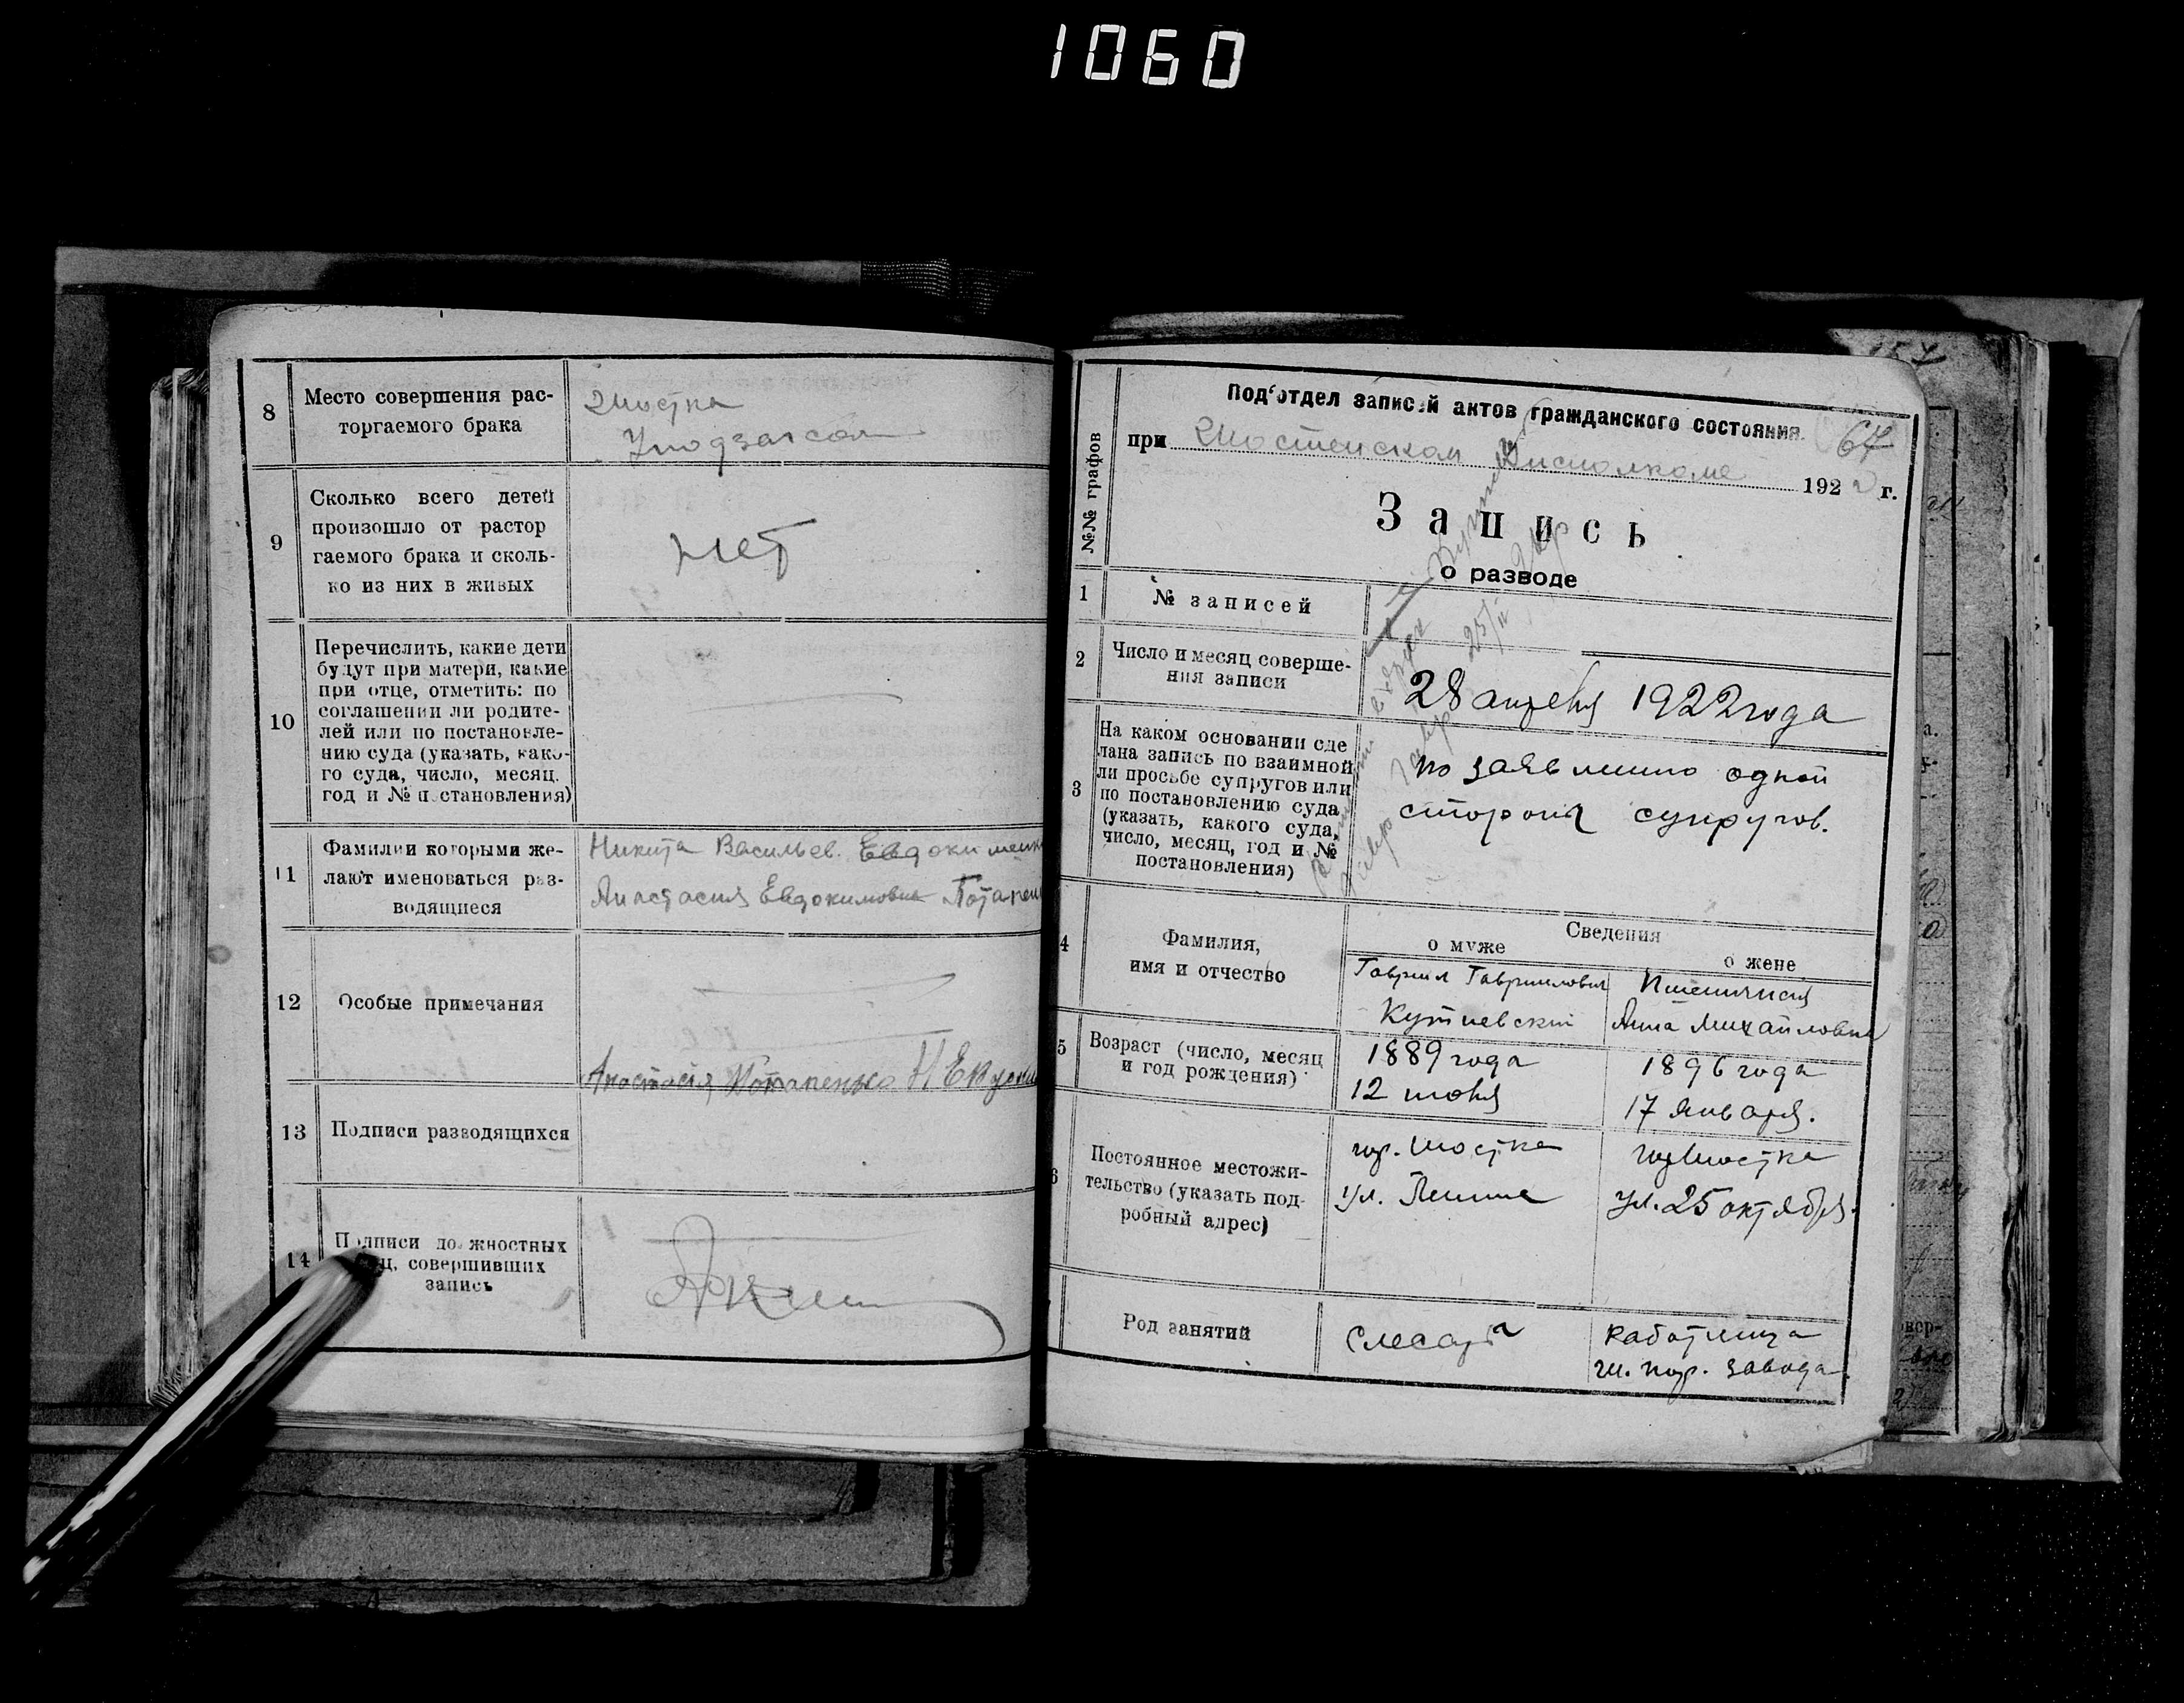 1060
8
Место совершения рас-
торгаемого брака
Шостка
9
Сколько всего детей
произошло от растор
гаемого брака и сколь-
ко из них в живых
нет
10
Перечислить, какие дети
будут при матери, какие
при отце, отметить: по
соглашении ли родите-
лей или по постановле-
нию суда (указать, како-
го суда, число, месяц,
год и № постановления)
11
Фамилии которыми же-
лают именоваться раз-
водящиеся
Никита Васильев. Евдокименк
Анастасия Евдокимовна Потапен
12
Особые примечания
Анастасія Потапенько Н
13
Подписи разводящихся
14
Подписи должностных
совершивших
запись
№№ графов
Под'отдел записей актов гражданского состояния.
67
при Шостенском исполкоме 1922 г.
Запись
о разводе
1
№ записей
2
Число и месяц соверше-
ния записи
28 апреля 1922 года
3
На каком основании сде
лана запись по взаимной
ли просьбе супругов или
по постановлению суда
(указать, какого суда,
число, месяц, год и №
постановления)
по заявлению одной
стороны супругов.
4
Фамилия,
имя и отчество
Сведения
о муже
о жене
Гавриил Гавриилович
Кутневский
Пшеничная
Анна Михайловна
5
Возраст (число, месяц
и год рождения)
1889 года
12 июня
1896 года
17 января.
6
Постоянное местожи-
тельство (указать под-
робный адрес)
гор. Шостка
ул. Ленина
гор Шостка
ул. 25 октября.
Род занятий
Слесарь
работница
ш. пор. завода.